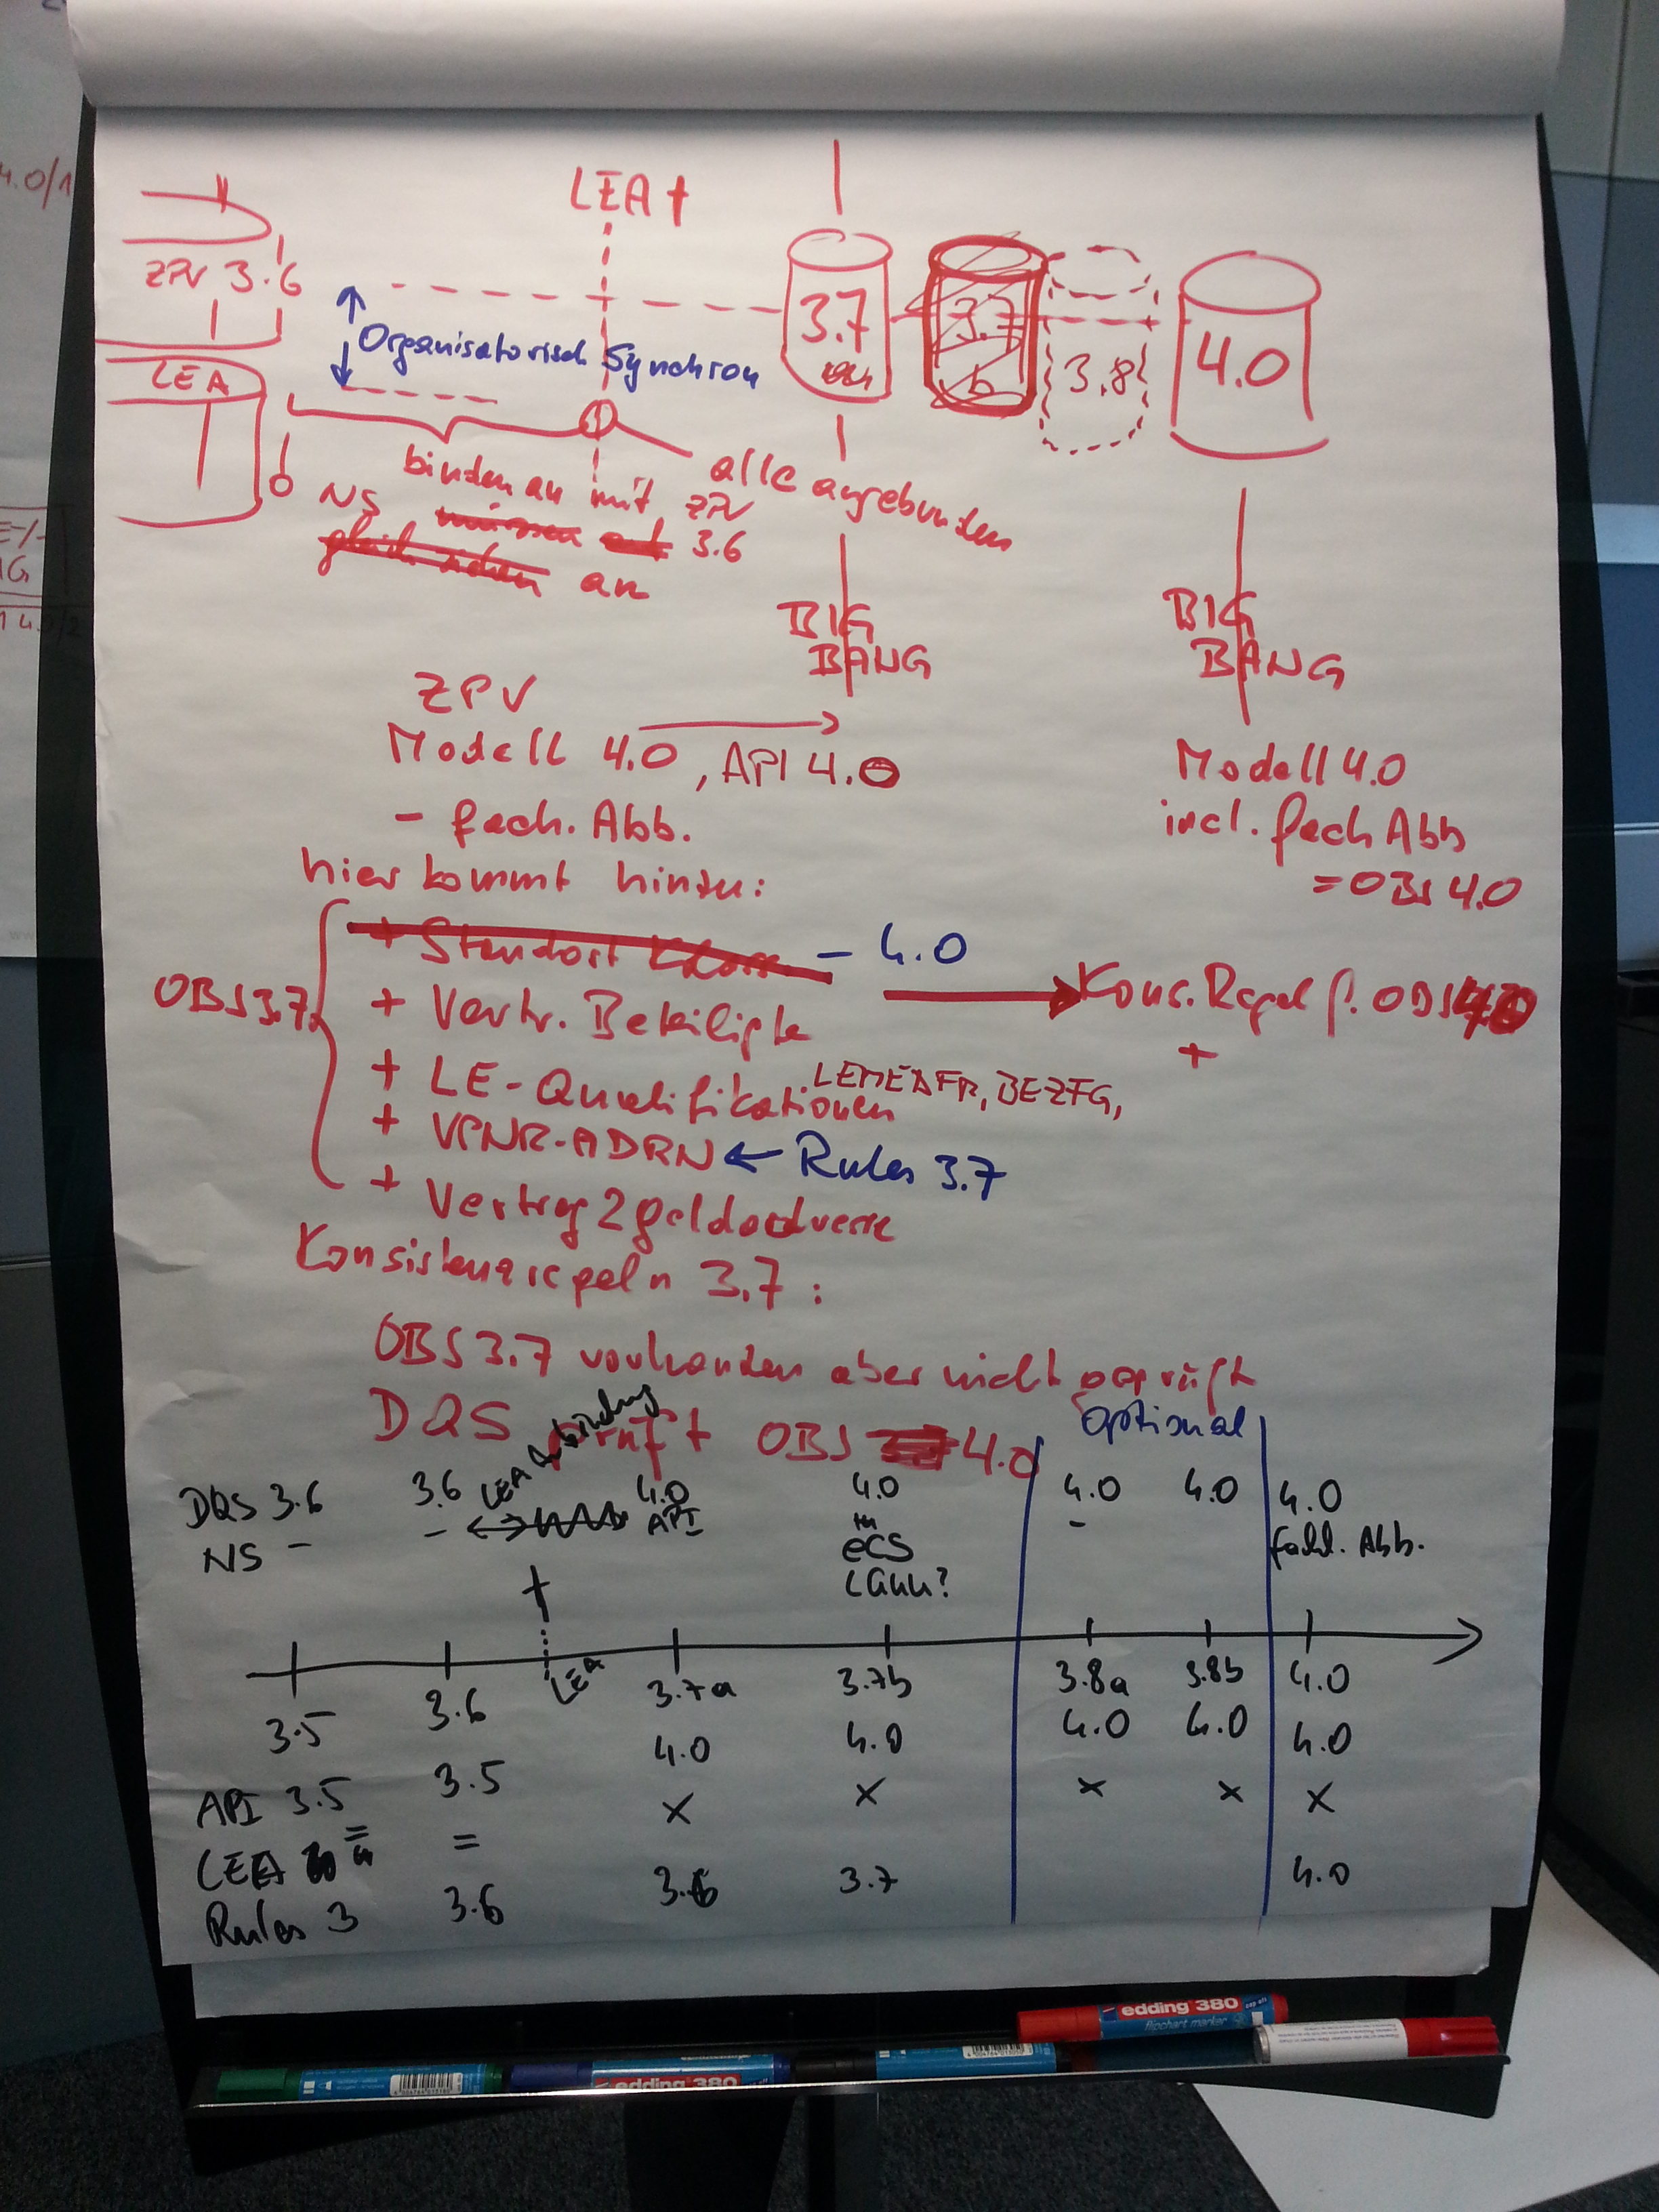 LEA †
ZPV 3.6
3.7
3.7
b
3.8
4.0
Organisatorisch Synchron
LEA
binden an mit ZPV
alle angebunden
NS müssen
3.6
an
BIG
BANG
BIG
BANG
ZPV
Modell 4.0, API 4.0
- fach. Abb.
Modell 4.0
incl. fach Abb
= OBS 4.0
hier kommt hinzu:
+ Standort Klass. - 4.0
OBS 3.7
+ Vertr. Beteiligte
Kons. Regel f. OBS 4.0
+
+ LE-Qualifikationen LEMEDFR, BEZFG,
+ VPNR-ADRN ← Rules 3.7
+ Vertrag2geldadresse
Konsistenzregeln 3.7:
OBS 3.7 vorhanden aber nicht geprüft
DQS prüft OBS 4.0
optional
LEA Anbindung
DQS 3.6 3.6 4.0 4.0 4.0 4.0 4.0
NS - - API - fachl. Abb.
eCS
LEA
3.5 3.6 3.7a 3.7b 3.8a 3.8b 4.0
API 3.5 3.5 4.0 4.0 4.0 4.0 4.0
LEA = = x x x x x
Rules 3 3.6 3.6 3.7 4.0
4.0/1
edding 380
flipchart marker
edding 380